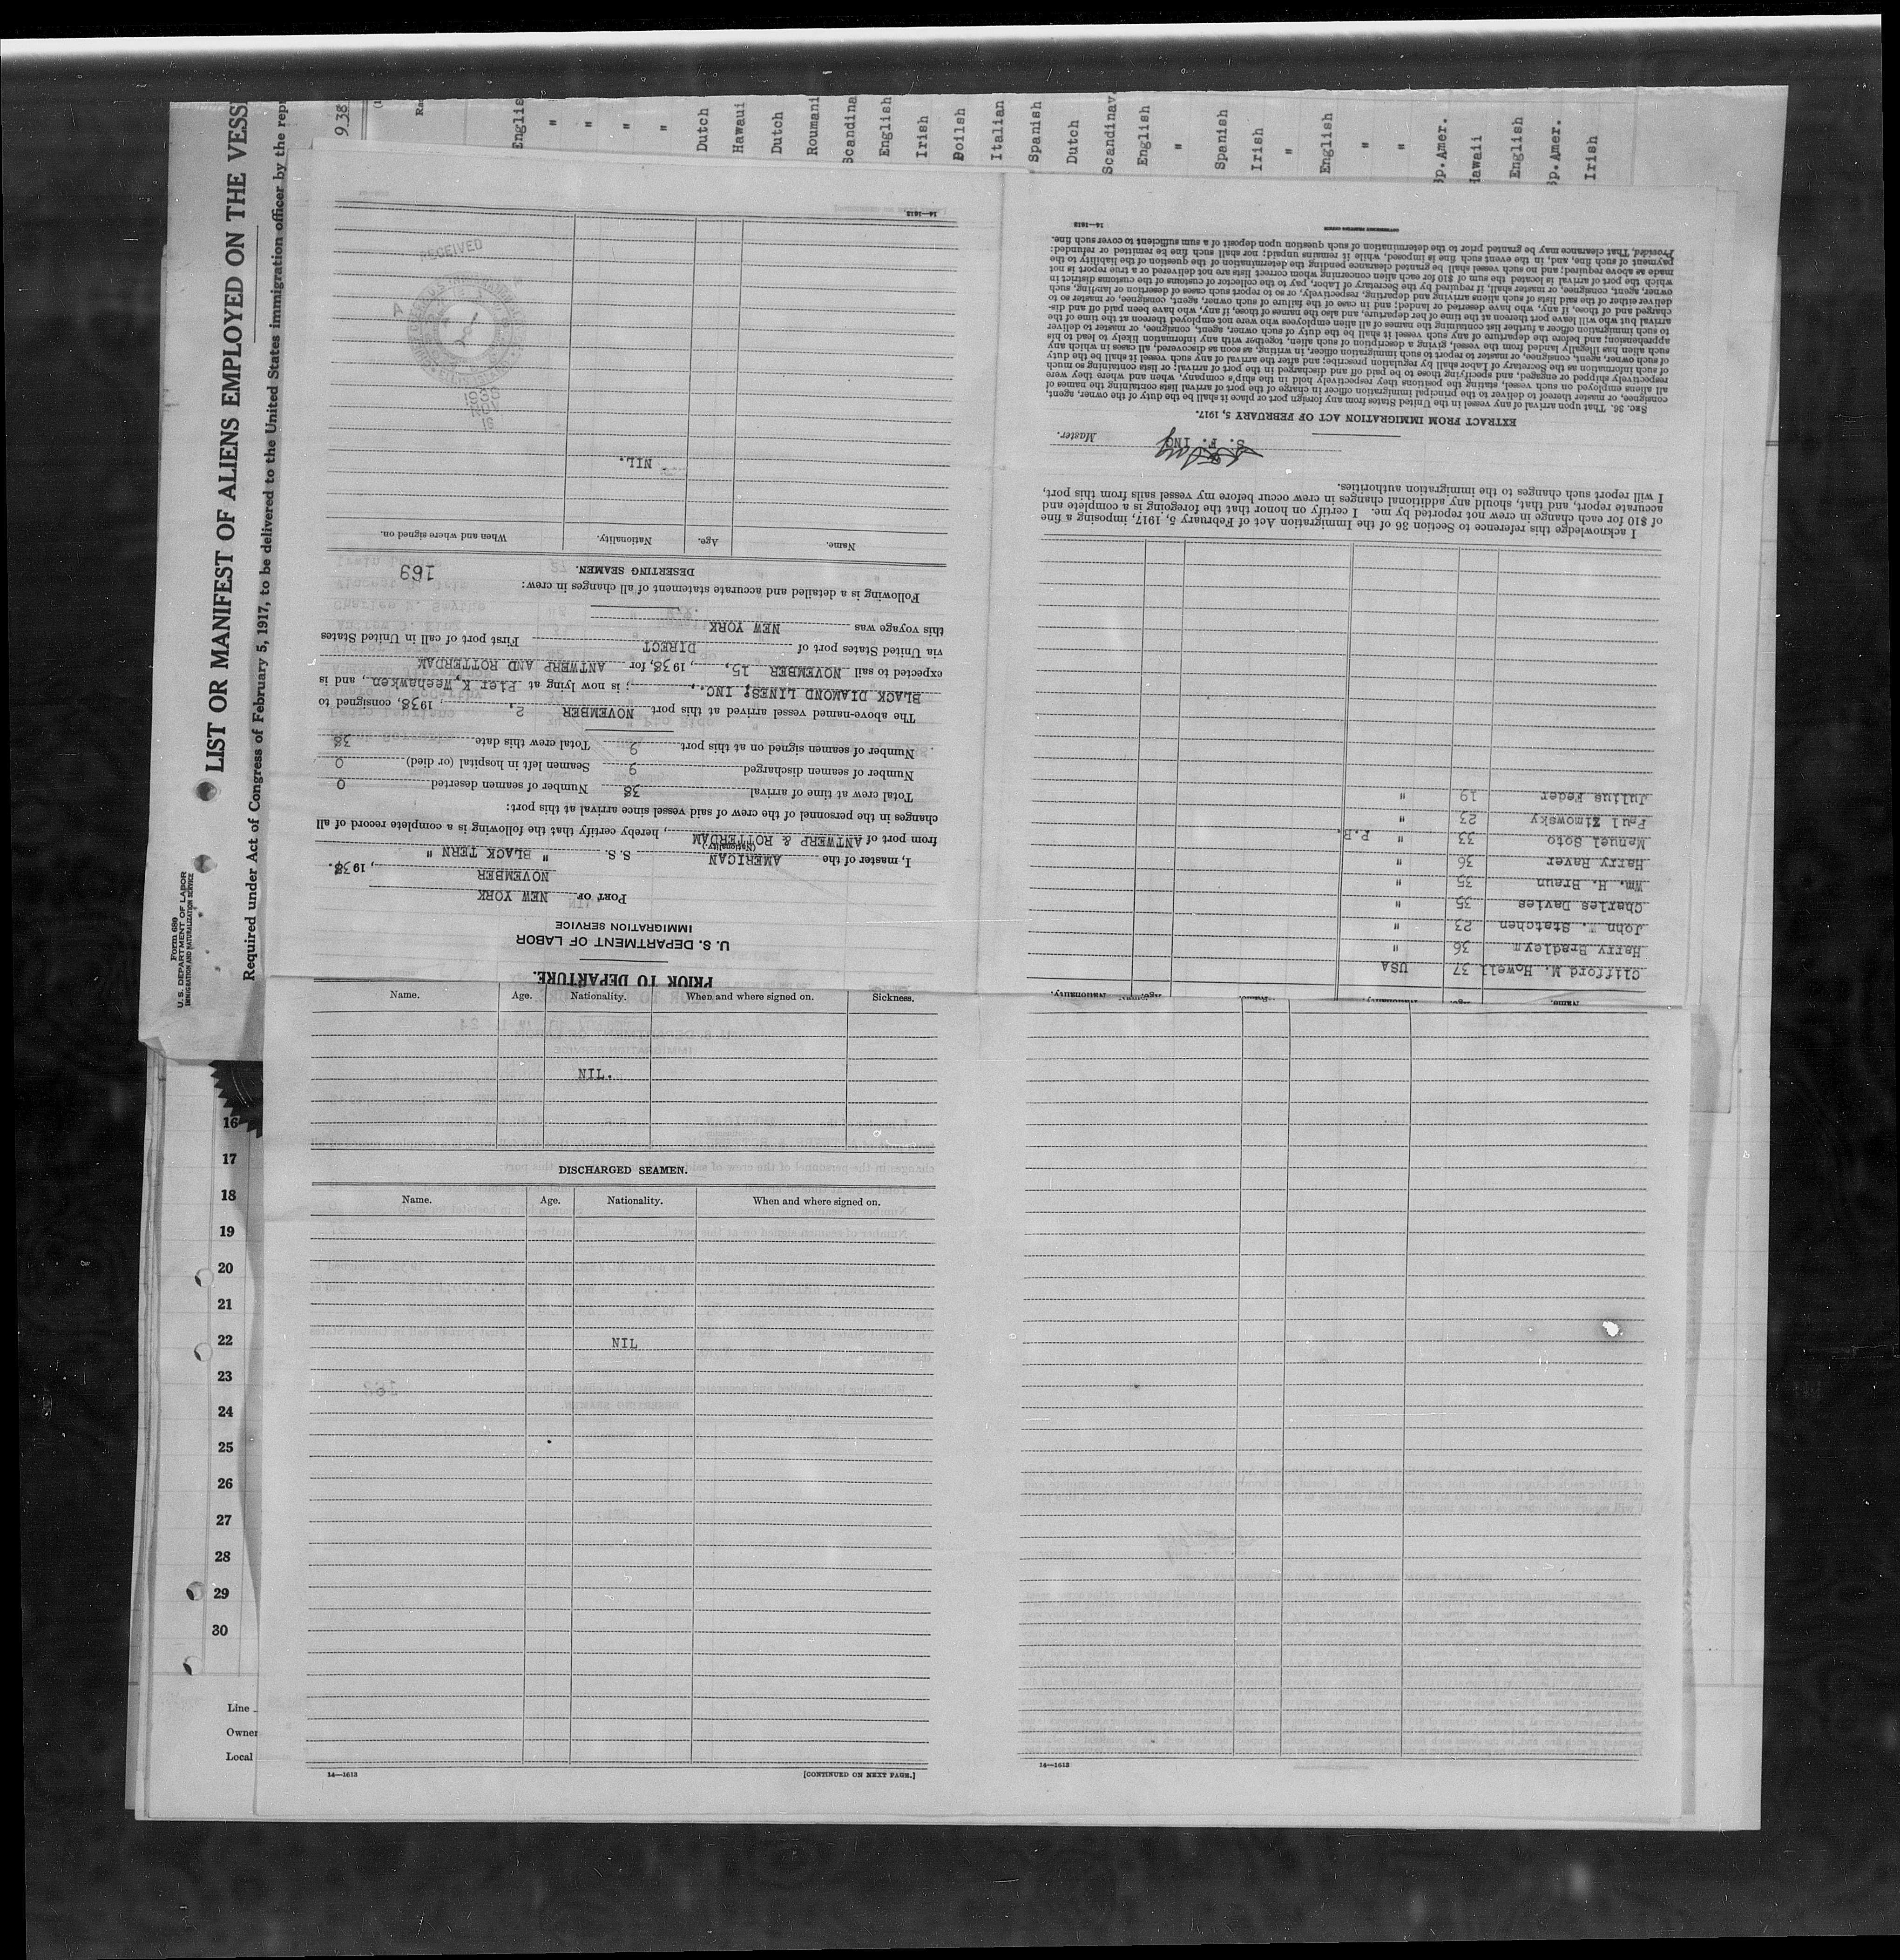 LIST OR MANIFEST OF ALIENS EMPLOYED ON THE VESS
Required under Act of Congress of February 5, 1917, to be delivered to the United States immigration officer by the rep
Form 689
U. S. DEPARTMENT OF LABOR
IMMIGRATION AND NATURALIZATION SERVICE
938
Englis
"
"
"
"
Dutch
Hawaui
Dutch
Roumani
Scandina
English
Irish
Doilsh
Italian
Spanish
Dutch
Scandinav.
English
"
Spanish
Irish
"
English
"
"
Sp. Amer.
Hawaii
English
Sp. Amer.
Irish
PRIOR TO DEPARTURE.
U. S. DEPARTMENT OF LABOR
IMMIGRATION SERVICE
PORT OF NEW YORK
NOVEMBER , 1938.
I, master of the AMERICAN S. S. " BLACK TERN "
(Nationality)
from port of ANTWERP & ROTTERDAM, hereby certify that the following is a complete record of all
changes in the personnel of the crew of said vessel since arrival at this port:
Total crew at time of arrival 38 Number of seamen deserted 0
Number of seamen discharged 9 Seamen left in hospital (or died) 0
Number of seamen signed on at this port 9 Total crew this date 38
The above-named vessel arrived at this port NOVEMBER 2, , 1938, consigned to
BLACK DIAMOND LINES, INC., ; is now lying at Pier K, Weehawken, and is
expected to sail NOVEMBER 15, , 1938, for ANTWERP AND ROTTERDAM
via United States port of DIRECT First port of call in United States
this voyage was NEW YORK
Following is a detailed and accurate statement of all changes in crew:
169
DESERTING SEAMEN.
Name. Age. Nationality. When and where signed on.
NIL.
16
NOV
1938
RECEIVED
14—1613
Name. Age. Nationality.
Clifford M. Howell 37 USA
Harry Bradley 36 "
John W. Statchen 23 "
Charles Davies 35 "
Wm. H. Braun 35 "
Harry Raver 36 "
Manuel Soto 33 " P.R.
Paul Zimowsky 23 "
Julius Feder 19 "
I acknowledge this reference to Section 36 of the Immigration Act of February 5, 1917, imposing a fine
of $10 for each change in crew not reported by me. I certify on honor that the foregoing is a complete and
accurate report, and that, should any additional changes in crew occur before my vessel sails from this port,
I will report such changes to the immigration authorities.
S. F. ING
Master.
EXTRACT FROM IMMIGRATION ACT OF FEBRUARY 5, 1917.
Sec. 36. That upon arrival of any vessel in the United States from any foreign port or place it shall be the duty of the owner, agent,
consignee, or master thereof to deliver to the principal immigration officer in charge of the port of arrival lists containing the names of
all aliens employed on such vessel, stating the positions they respectively hold in the ship's company, when and where they were
respectively shipped or engaged, and specifying those to be paid off and discharged in the port of arrival; or lists containing so much
of such information as the Secretary of Labor shall by regulation prescribe; and after the arrival of any such vessel it shall be the duty
of such owner, agent, consignee, or master to report to such immigration officer, in writing, as soon as discovered, all cases in which any
such alien has illegally landed from the vessel, giving a description of such alien, together with any information likely to lead to his
apprehension; and before the departure of any such vessel it shall be the duty of such owner, agent, consignee, or master to deliver
to such immigration officer a further list containing the names of all alien employees who were not employed thereon at the time of the
arrival but who will leave port thereon at the time of her departure, and also the names of those, if any, who have been paid off and dis-
charged and of those, if any, who have deserted or landed; and in case of the failure of such owner, agent, consignee, or master so to
deliver either of the said lists of such aliens arriving and departing, respectively, or so to report such cases of desertion or landing, such
owner, agent, consignee, or master shall, if required by the Secretary of Labor, pay to the collector of customs of the customs district in
which the port of arrival is located the sum of $10 for each alien concerning whom correct lists are not delivered or a true report is not
made as above required; and no such vessel shall be granted clearance pending the determination of the question of the liability to the
payment of such fine, and, in the event such fine is imposed, while it remains unpaid; nor shall such fine be remitted or refunded:
Provided, That clearance may be granted prior to the determination of such question upon deposit of a sum sufficient to cover such fine.
14—1613
Name. Age. Nationality. When and where signed on. Sickness.
NIL.
DISCHARGED SEAMEN.
Name. Age. Nationality. When and where signed on.
NIL
14—1613
[CONTINUED ON NEXT PAGE.]
14—1613
16
17
18
19
20
21
22
23
24
25
26
27
28
29
30
Line
Owner
Local